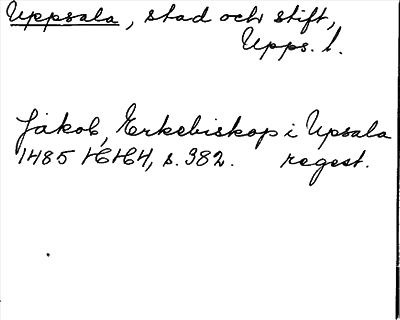 Uppsala, stad och stift,
Upps. l.
Jakob, Erkebiskop i Upsala
1485 HH4, s. 382. regest.